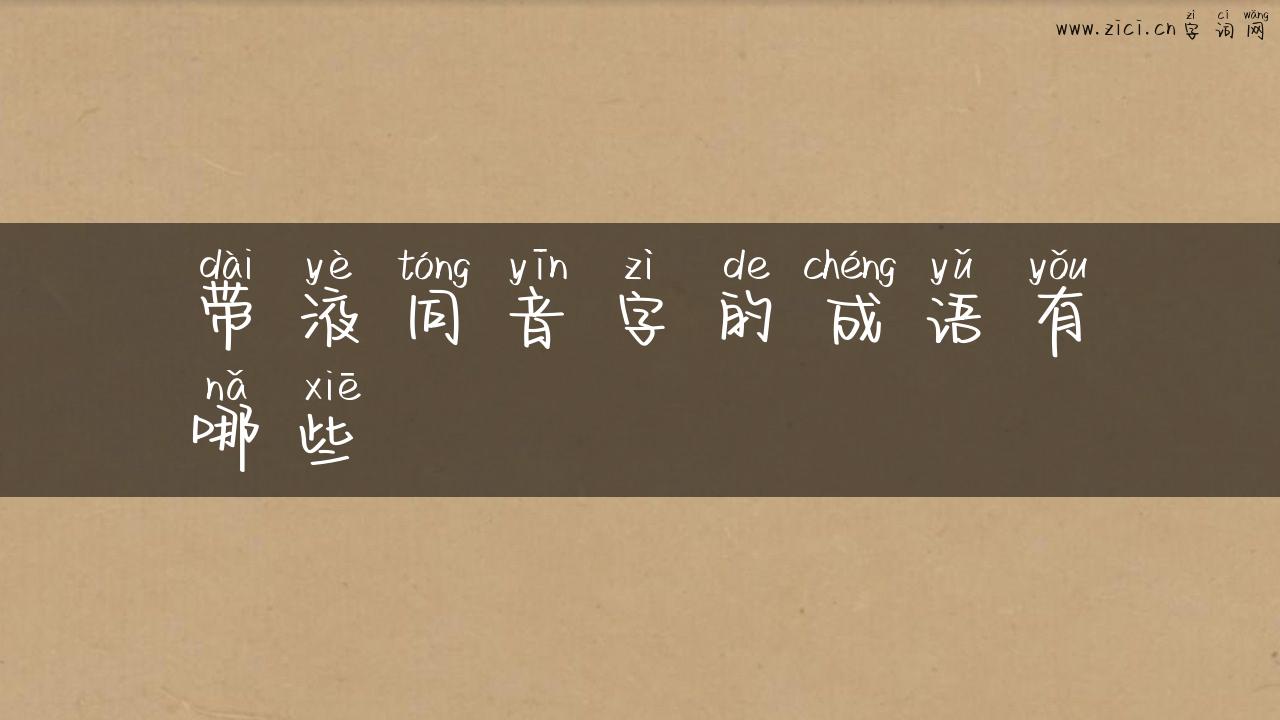 zì cí wǎng
www.zici.cn 字词网
dài yè tóng yīn zì de chéng yǔ yǒu
带液同音字的成语有
nǎ xiē
哪些